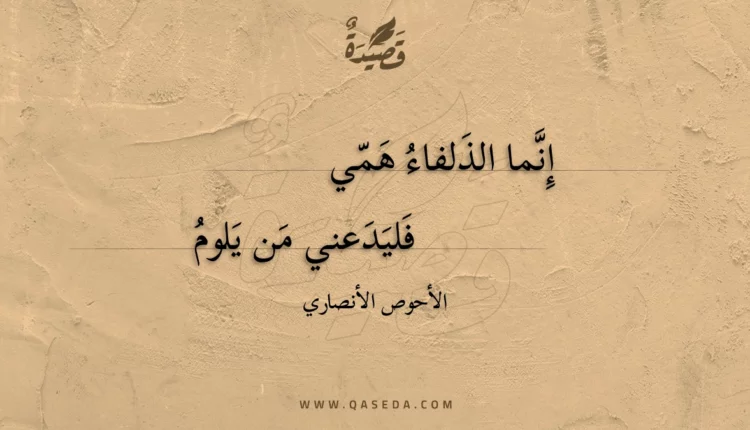 قَصِيدَةٌ
إِنَّما الذَلفاءُ هَمّي
فَليَدَعني مَن يَلومُ
الأحوص الأنصاري
WWW.QASEDA.COM